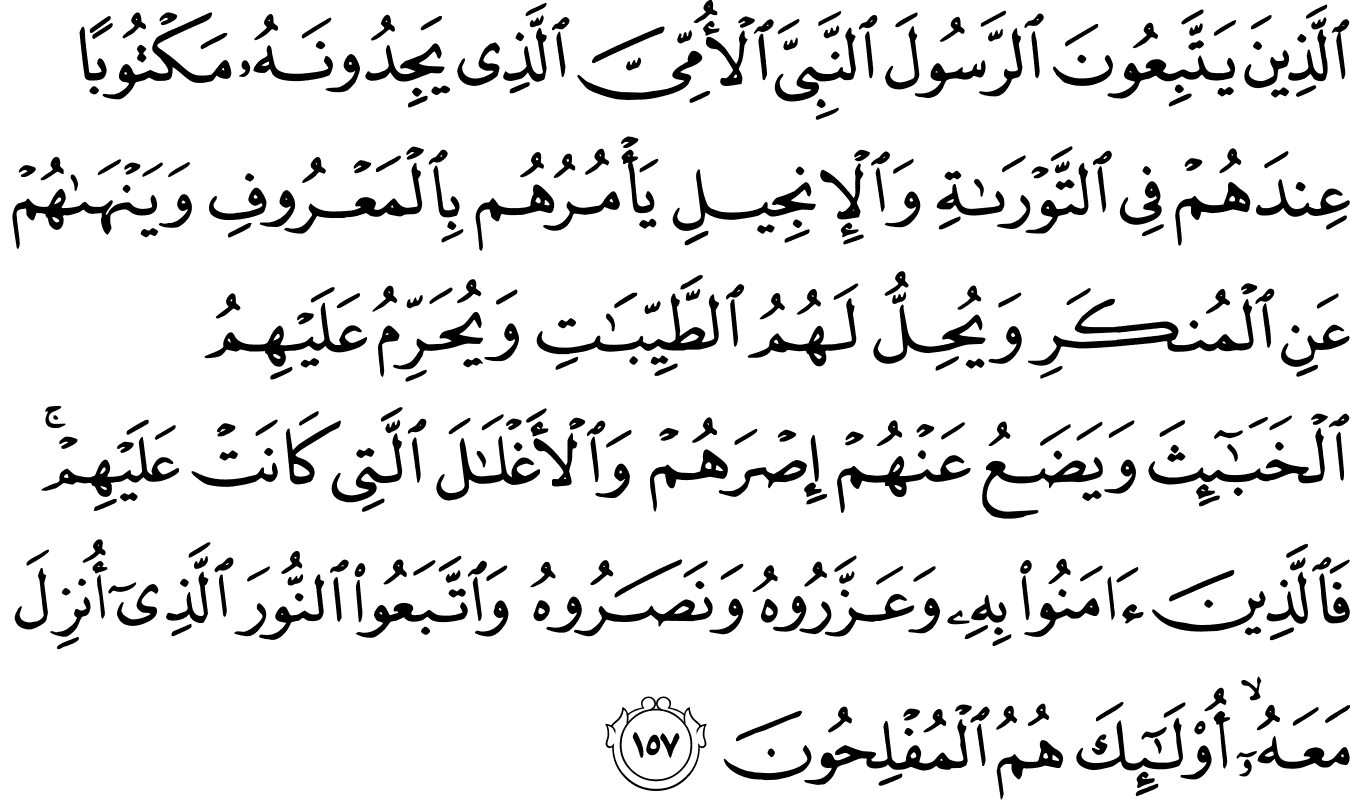 ٱلَّذِينَ يَتَّبِعُونَ ٱلرَّسُولَ ٱلنَّبِىَّ ٱلْأُمِّىَّ ٱلَّذِى يَجِدُونَهُۥ مَكْتُوبًا
عِندَهُمْ فِى ٱلتَّوْرَىٰةِ وَٱلْإِنجِيلِ يَأْمُرُهُم بِٱلْمَعْرُوفِ وَيَنْهَىٰهُمْ
عَنِ ٱلْمُنكَرِ وَيُحِلُّ لَهُمُ ٱلطَّيِّبَـٰتِ وَيُحَرِّمُ عَلَيْهِمُ
ٱلْخَبَـٰٓئِثَ وَيَضَعُ عَنْهُمْ إِصْرَهُمْ وَٱلْأَغْلَـٰلَ ٱلَّتِى كَانَتْ عَلَيْهِمْ ۚ
فَٱلَّذِينَ ءَامَنُوا۟ بِهِۦ وَعَزَّرُوهُ وَنَصَرُوهُ وَٱتَّبَعُوا۟ ٱلنُّورَ ٱلَّذِىٓ أُنزِلَ
مَعَهُۥٓ ۙ أُو۟لَـٰٓئِكَ هُمُ ٱلْمُفْلِحُونَ ١٥٧